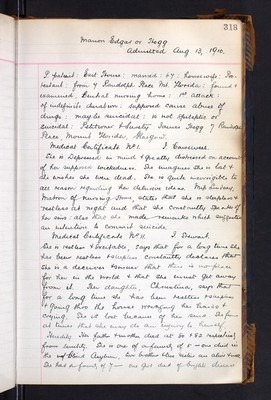 318
Marion Edgar or Hogg
Admitted Aug 13, 1910.
P. patient: East House: married: 67: housewife: Pro-
testant: from 7 Randolph Place Mt. Florida: found &
examined, Central nursing home: 1st attack:
of indefinite duration: supposed cause abuse of
drugs: maybe suicidal: is not epileptic or
suicidal: Petitioner & Society James Hogg 7 Randolph
Place Mount Florida, Glasgow.
Medical Certificate No 1. J. Carswell
She is depressed in mind & greatly distressed on account
of her supposed wickedness. She imagines she is lost &
she wishes she were dead. She is quite unamenable to
all reason regarding her delusive ideas. Miss Lindsay
Matron of nursing Home states that she is sleepless &
restless at night and that she constantly speaks of
her sins: also that she made remarks which suggested
an intention to commit suicide.
Medical Certificate No II. J. Stewart.
She is restless & excitable, says that for a long time she
has been restless & sleepless constantly declares that
she is a deceiver & sinner that this is no place
for her in the world & that she must get away
from it. Her daughter, Christina, says that
for a long time she has been restless & sleepless
& going thro' the house wringing her hands &
crying. She at lost balance of her mind. She fears
at times that she may do an injury to herself.
Heredity. Her father & mother died at 80 & 82 respectively
from senility. She is one of a family of 8 - one died in
the Blind Asylum, two brother blue
She has a family of 7 - one girl died of bright's disease